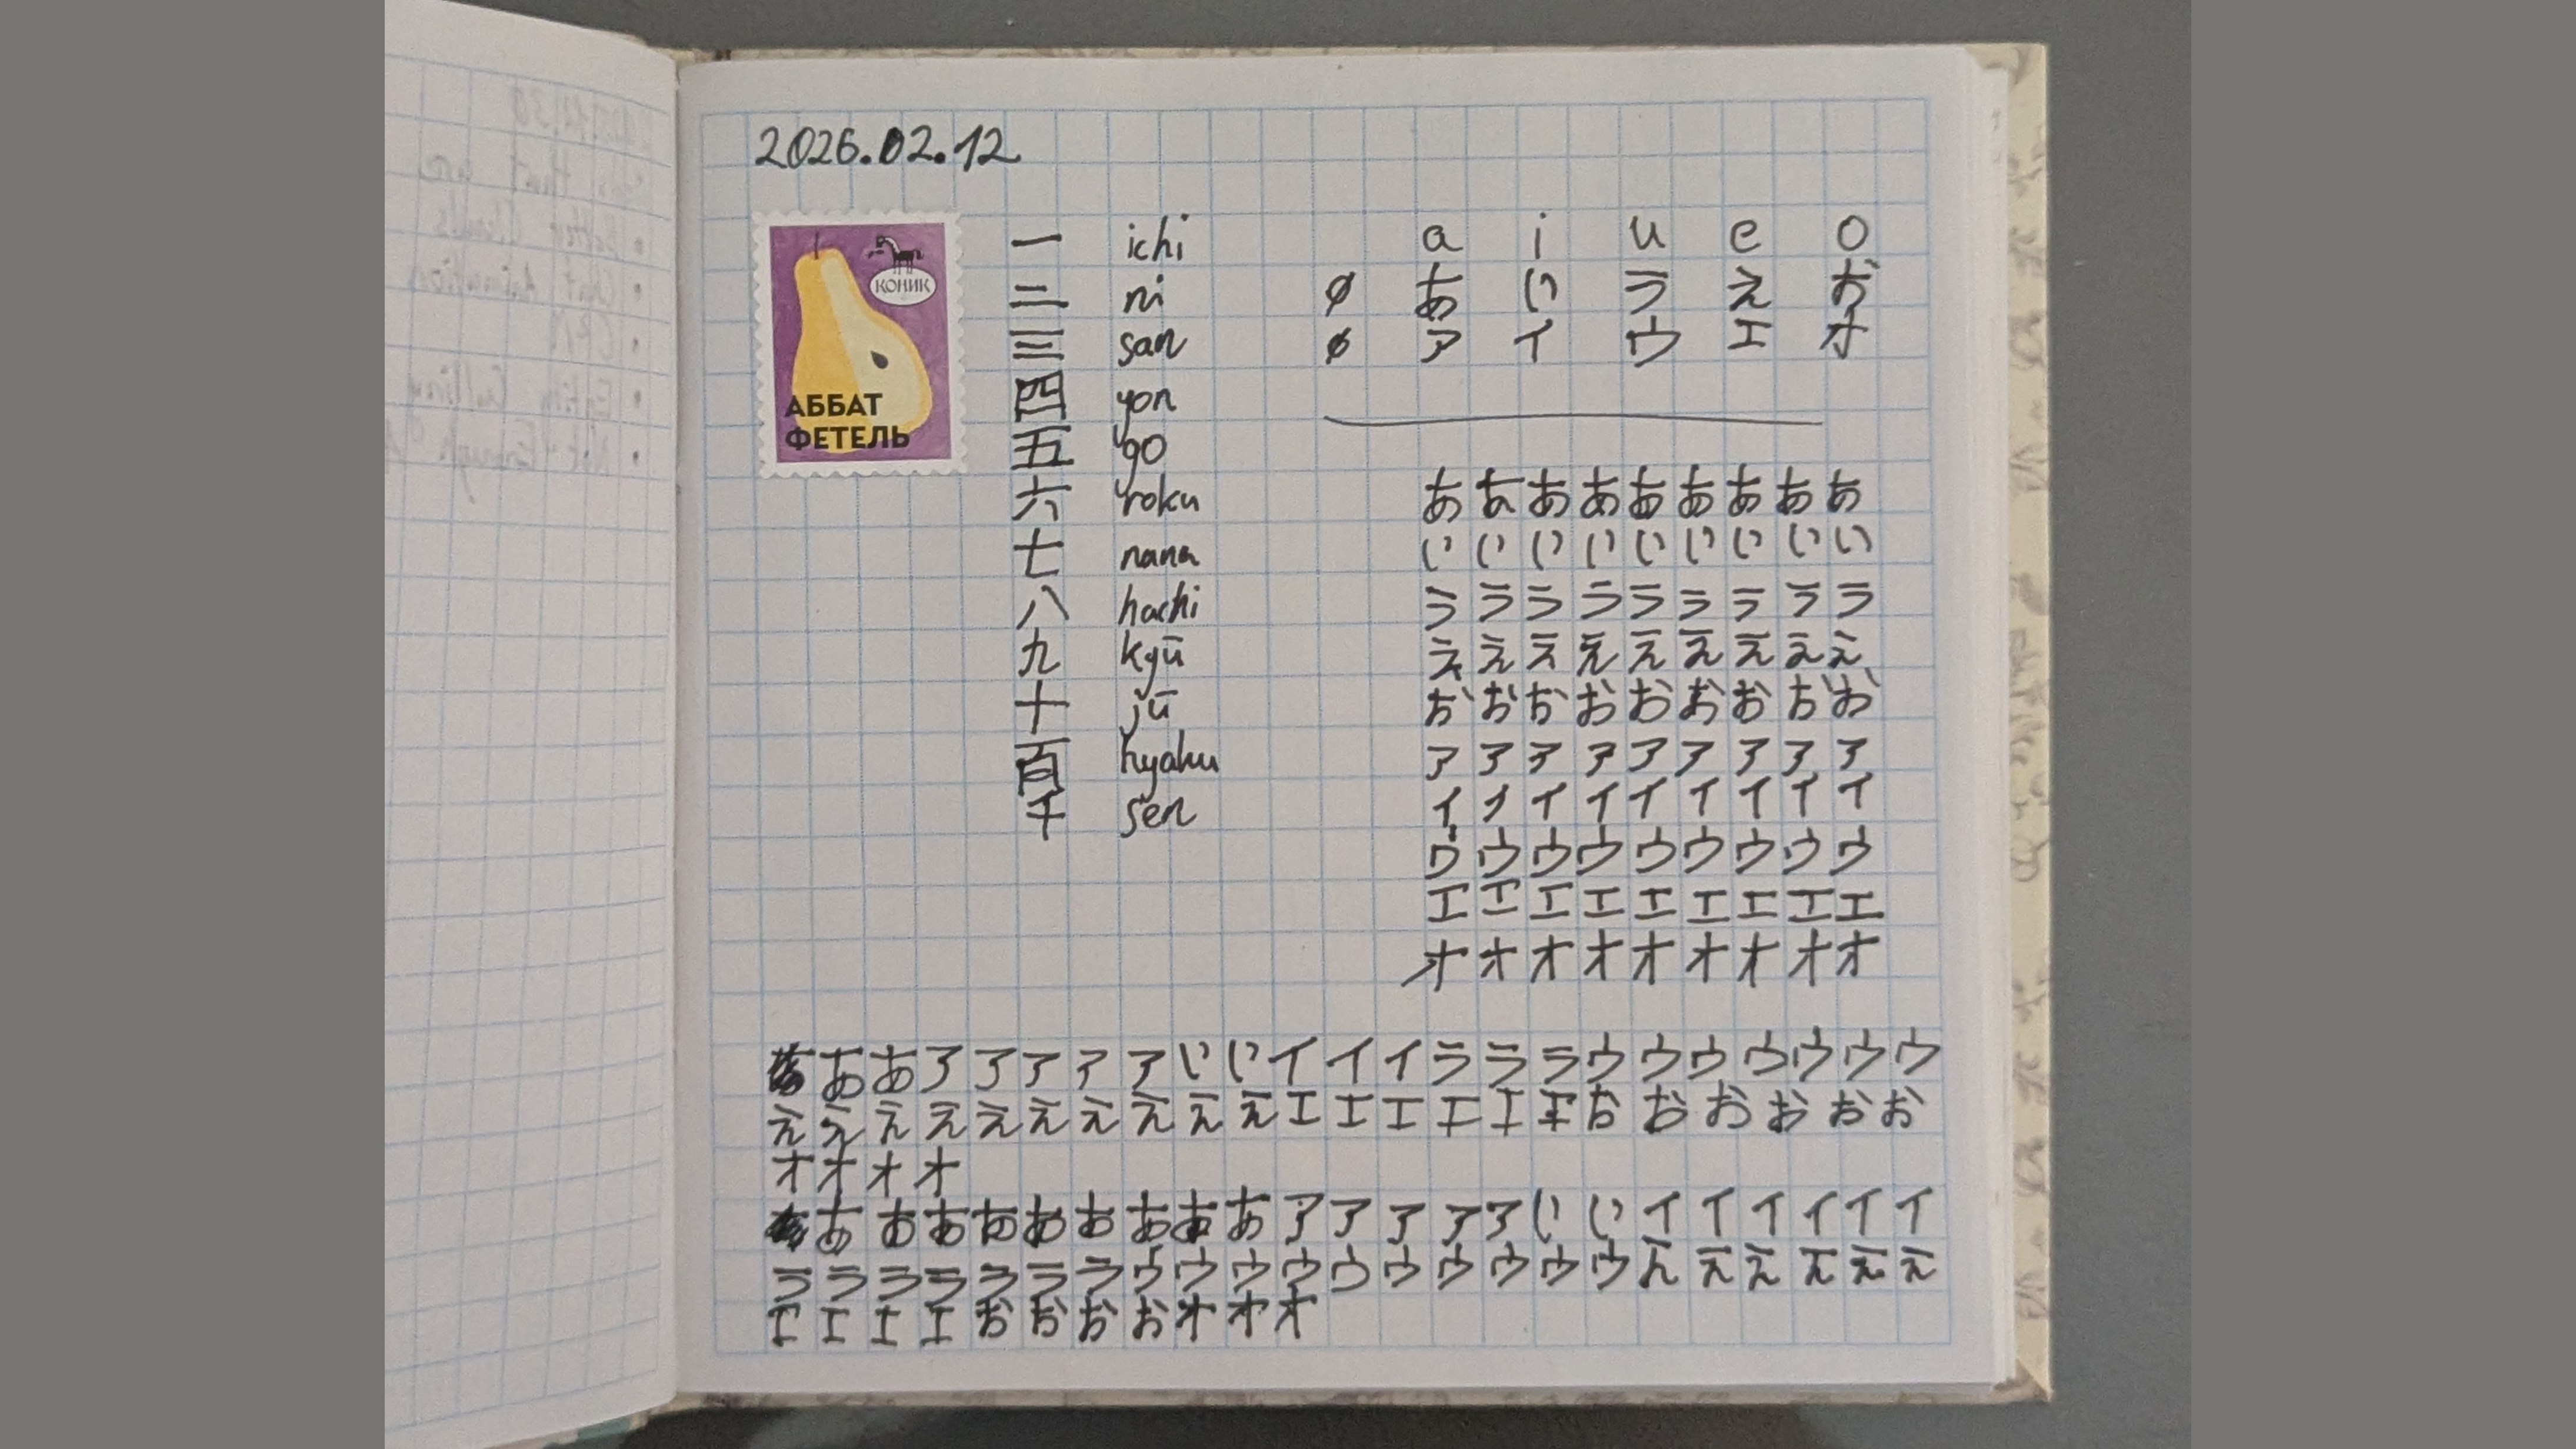 2026.02.12
КОНИК
АББАТ
ФЕТЕЛЬ
一 ichi
二 ni
三 san
四 yon
五 go
六 roku
七 nana
八 hachi
九 kyū
十 jū
百 hyaku
千 sen
a i u e o
ø あ い う え お
ø ア イ ウ エ オ
あああああああああ
いいいいいいいいい
ううううううううう
えええええええええ
おおおおおおおおお
アアアアアアアアア
イイイイイイイイイ
ウウウウウウウウウ
エエエエエエエエエ
オオオオオオオオオ
ああアアアアアいいイイイうううウウウウウウウ
ええええええええええエエエエエエおおおおおお
オオオオ
あああああああああアアアアアいいイイイイイイ
うううううううウウウウウウウウウウええええええ
エエエエおおおおオオオ